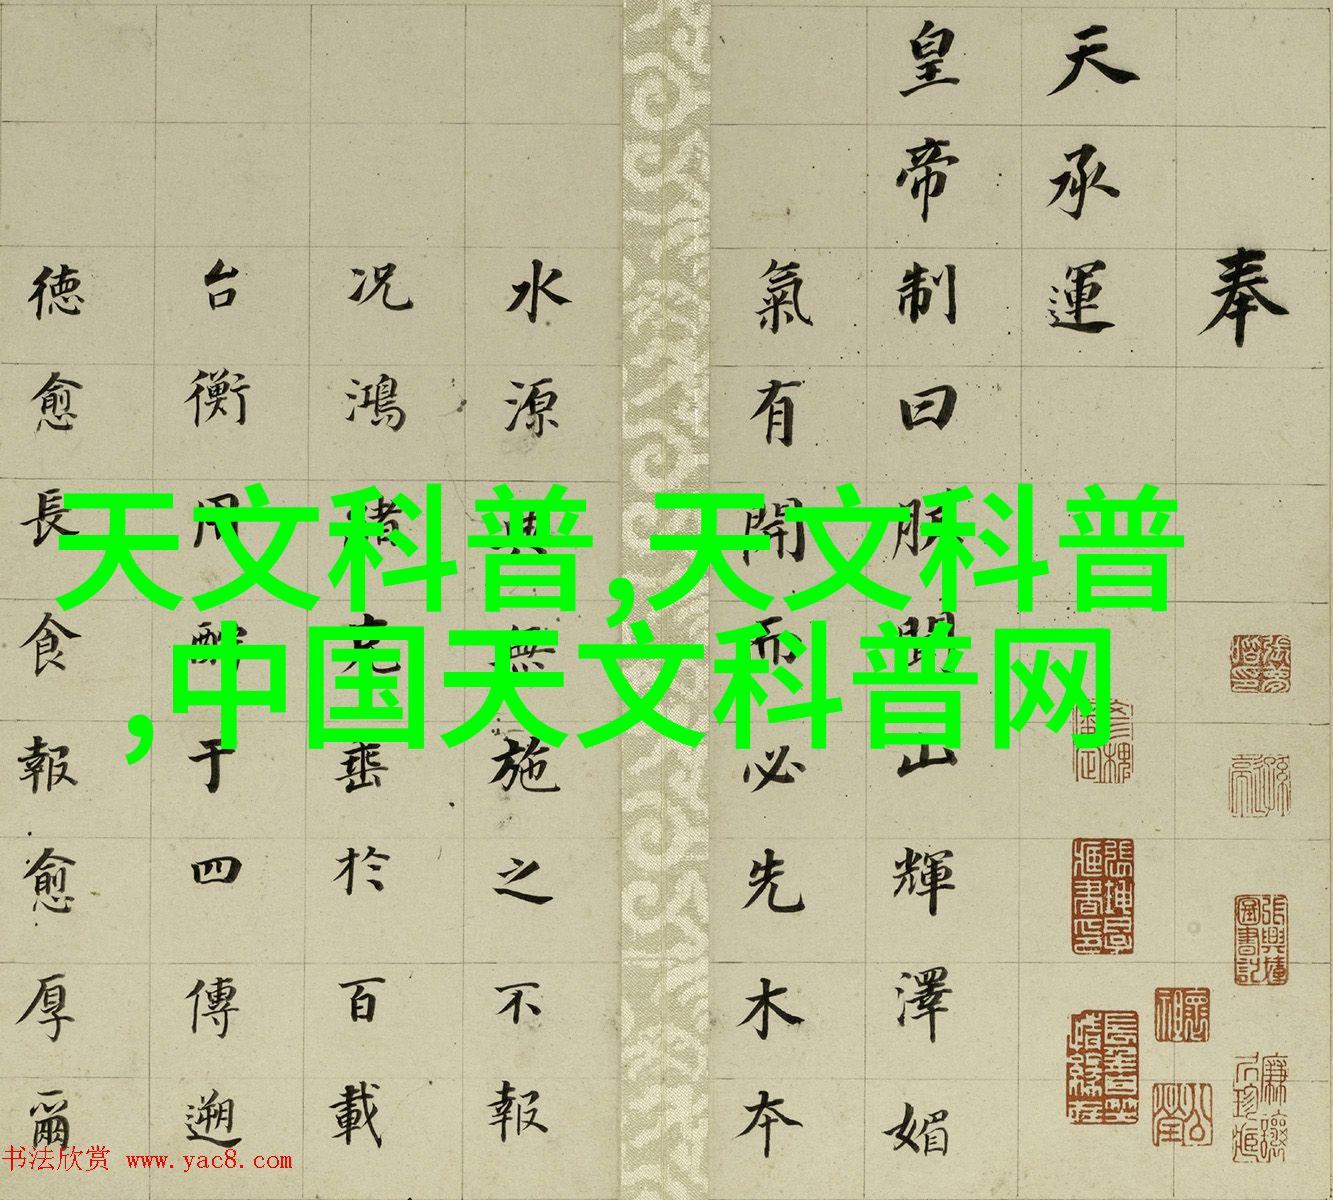 奉
天承運
皇帝制曰朕聞山輝澤媚
氣有開而必先木本
水源典無施之不報
况鴻緒克垂於百載
台衡用酬于四傳遡
德愈長食報愈厚爾
天文科普,天文科普
,中国天文科普网
书法欣赏 www.yac8.com